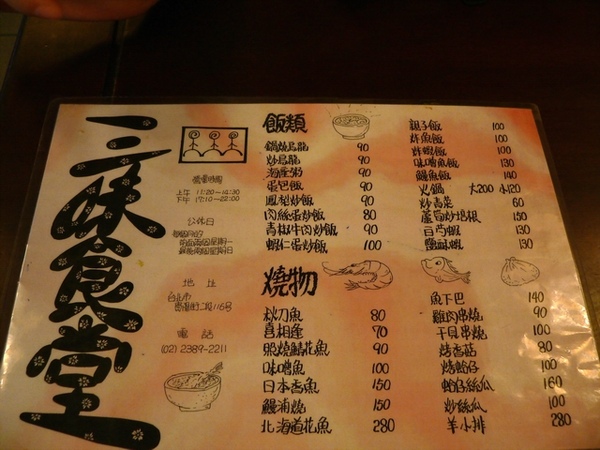 三味食堂
營業時間
上午 11:20~14:30
下午 17:10~22:00
公休日
地址
台北市
貴陽街二段116号
電話
(02) 2389-2211
飯類
鍋燒烏龍 90
炒烏龍 90
海產粥 90
蛋包飯 90
鳳梨炒飯 90
肉絲蛋炒飯 80
青椒牛肉炒飯 90
蝦仁蛋炒飯 100
親子飯 100
炸魚飯 100
炸蝦飯 100
味噌魚飯 130
鰻魚飯 140
火鍋 大200 小120
炒青菜 60
蘆筍炒培根 150
白芍蝦 130
鹽酥蝦 130
燒物
秋刀魚 80
喜相逢 70
照燒鯖花魚 90
味噌魚 100
日本香魚 150
鰻浦燒 150
北海道花魚 280
魚下巴 140
雞肉串燒 90
干貝串燒 100
烤香菇 80
烤蛤仔 100
蛤仔絲瓜 160
炒絲瓜 100
羊小排 280